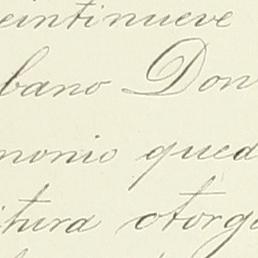 eintinueve
bano Don
monio qued
itura otorga